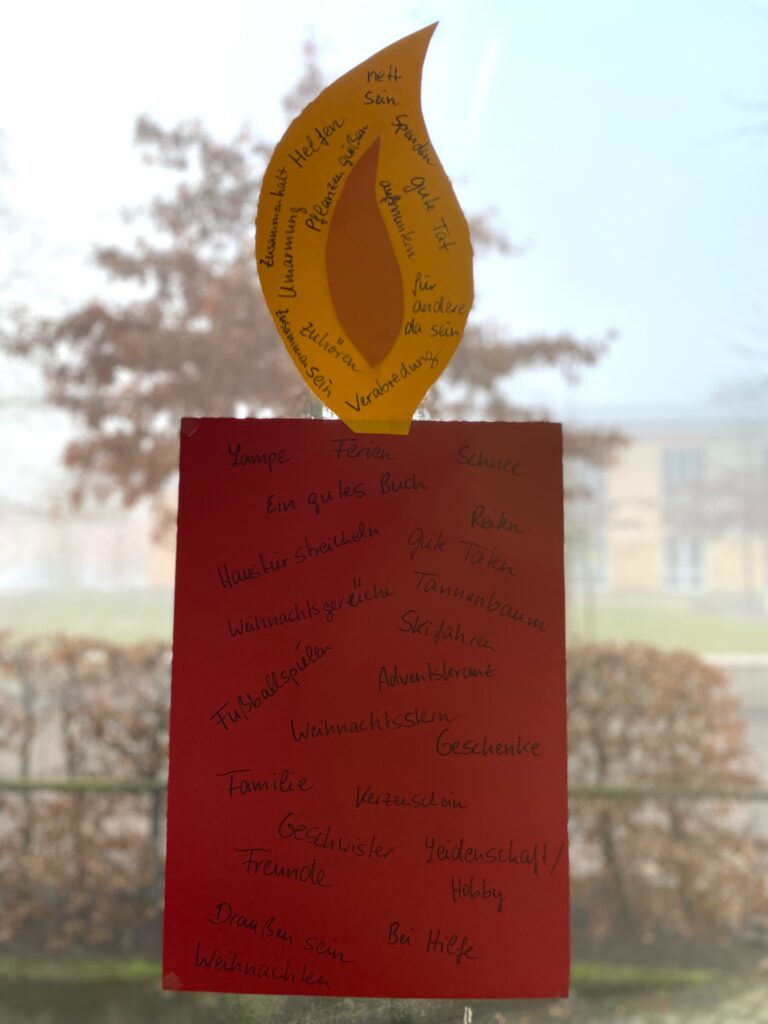 nett
sein
Spenden
Helfen
Pflanzen gießen
gute Tat
aufmuntern
Zusammenhalt
Umarmung
für
andere
da sein
zusammen sein
zuhören
Verabredung
Lampe Ferien Schnee
Ein gutes Buch
Reiten
Haustier streicheln
gute Taten
Weihnachtsgerüche
Tannenbaum
Skifahren
Fußballspielen
Adventskranz
Weihnachtsstern
Geschenke
Familie
Kerzenschein
Geschwister
Leidenschaft/
Hobby
Freunde
Draußen sein
Bei Hilfe
Weihnachten